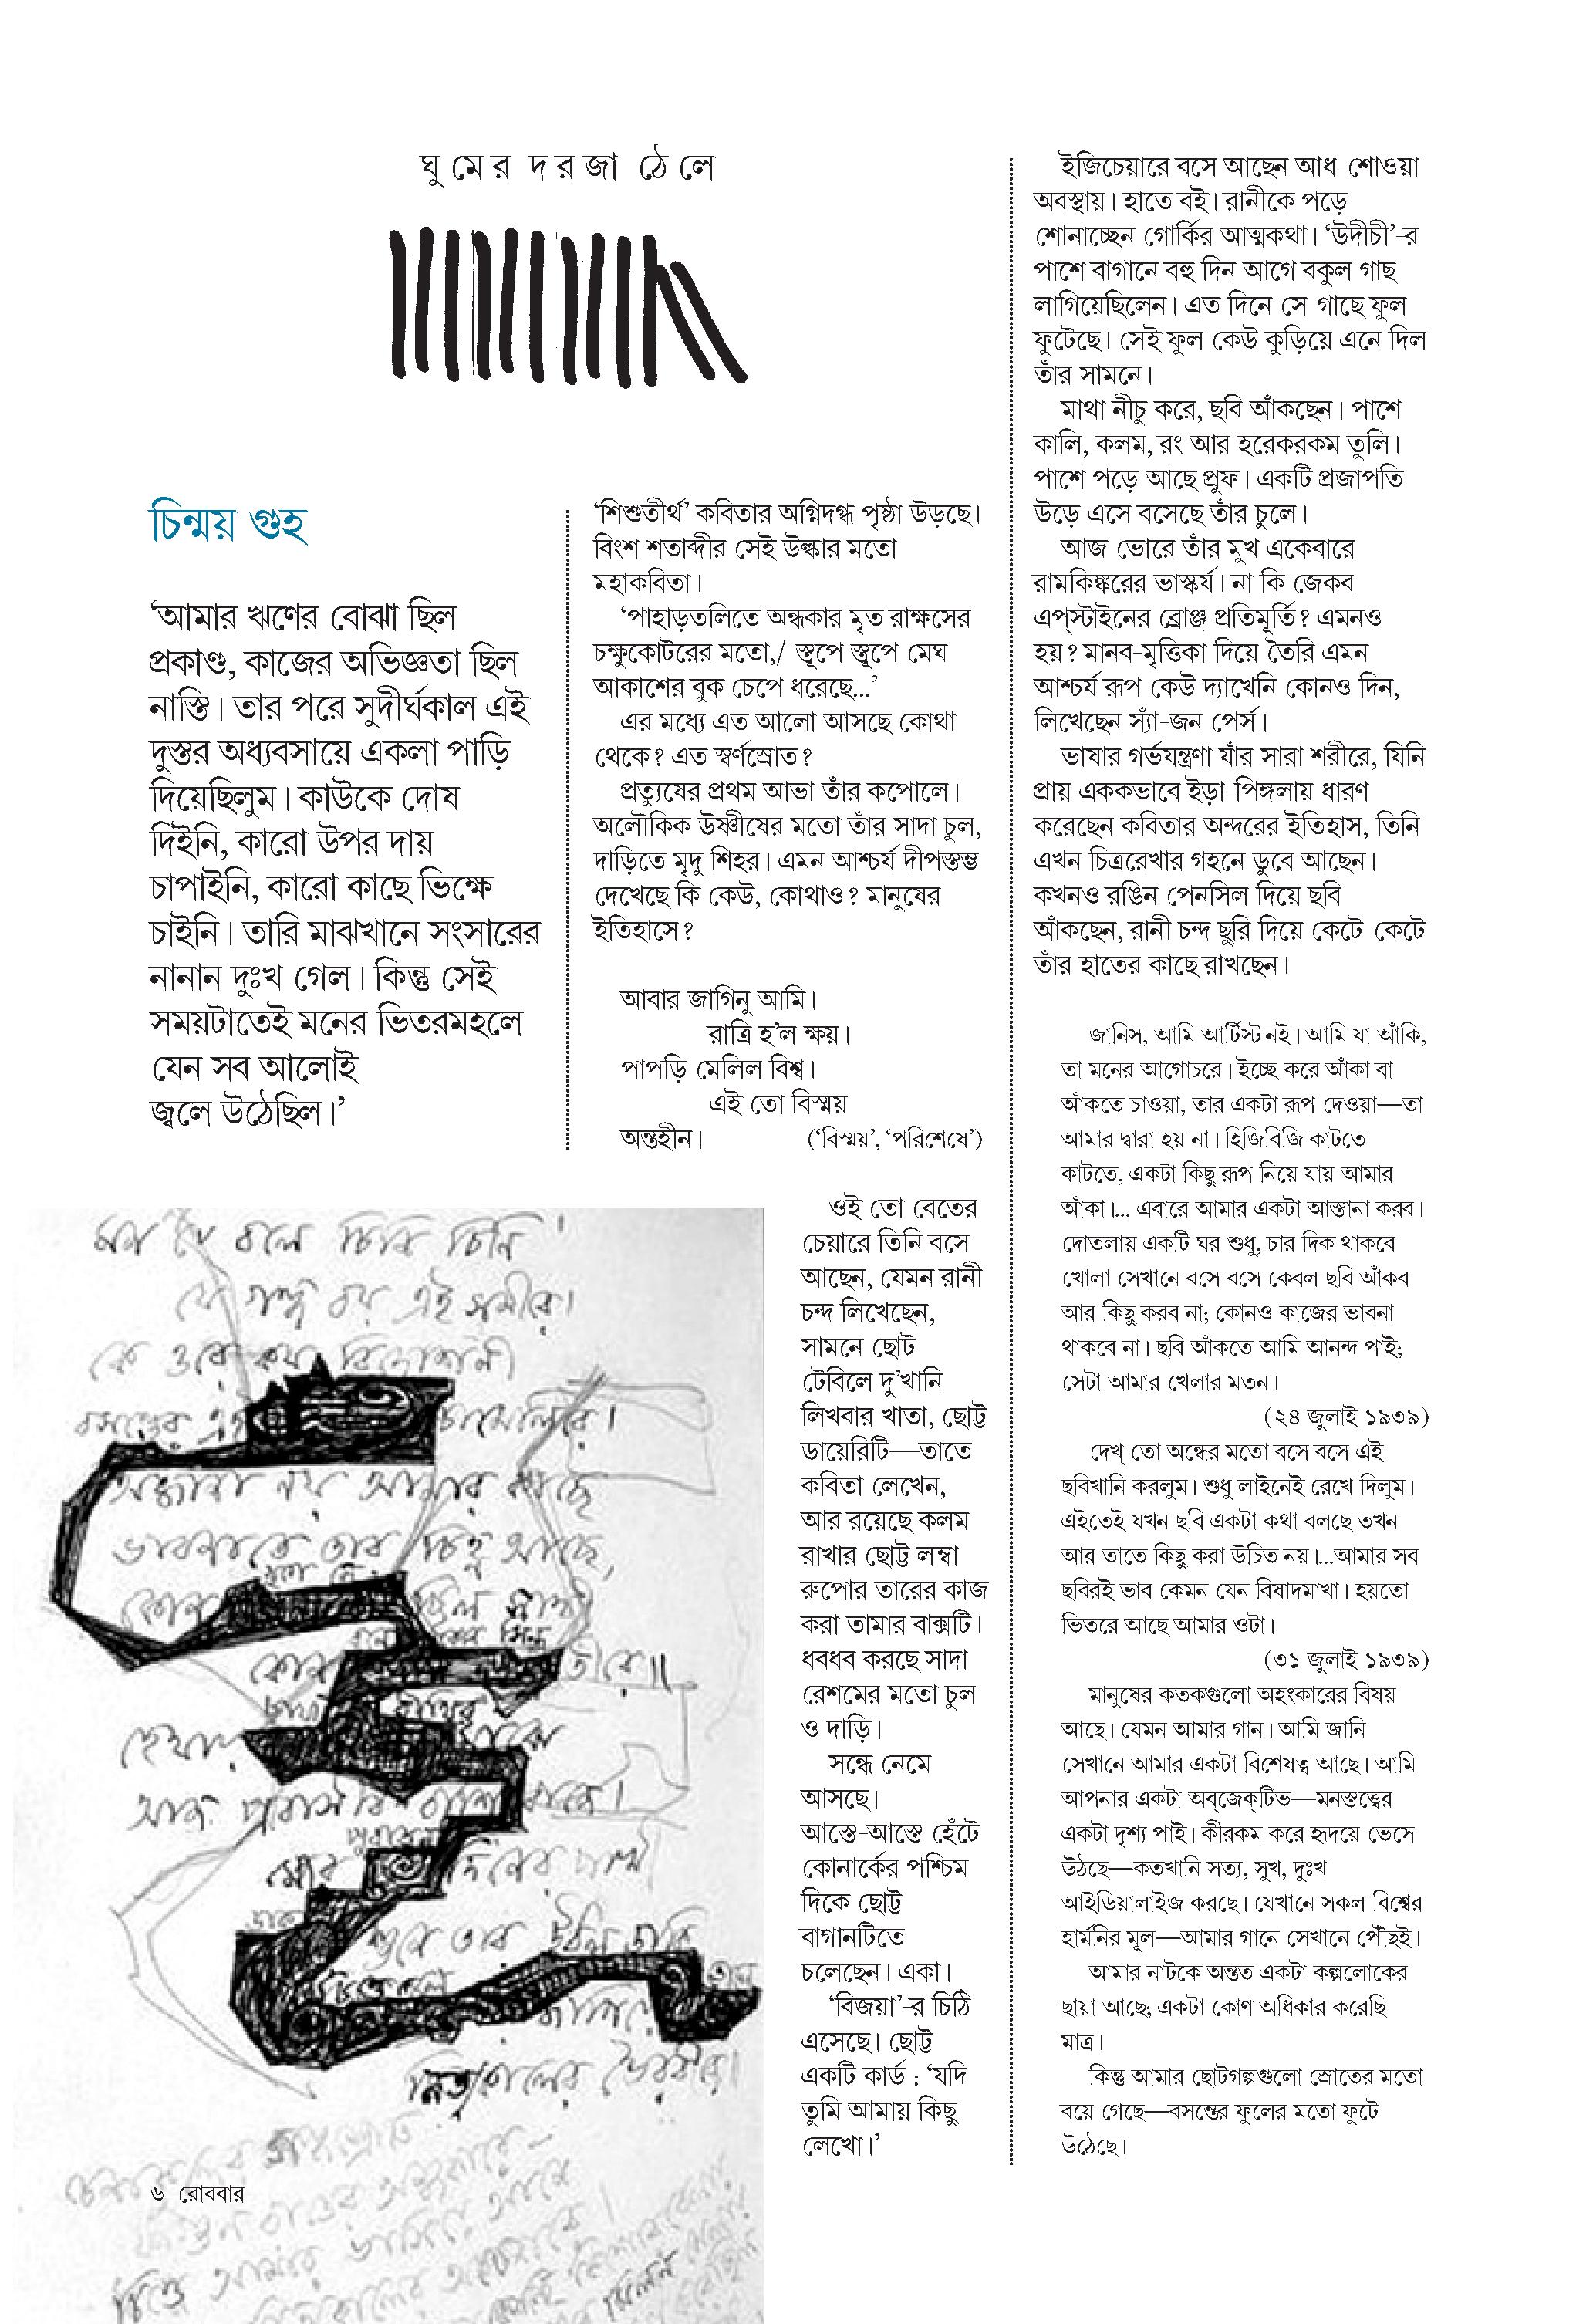 ঘুমের দরজা ঠেলে
চিন্ময় গুহ
‘আমার ঋণের বোঝা ছিল
প্রকাণ্ড, কাজের অভিজ্ঞতা ছিল
নাস্তি। তার পরে সুদীর্ঘকাল এই
দুস্তর অধ্যবসায়ে একলা পাড়ি
দিয়েছিলুম। কাউকে দোষ
দিইনি, কারো উপর দায়
চাপাইনি, কারো কাছে ভিক্ষে
চাইনি। তারি মাঝখানে সংসারের
নানান দুঃখ গেল। কিন্তু সেই
সময়টাতেই মনের ভিতরমহলে
যেন সব আলোই
জ্বলে উঠেছিল।’
‘শিশুতীর্থ’ কবিতার অগ্নিদগ্ধ পৃষ্ঠা উড়ছে।
বিংশ শতাব্দীর সেই উল্কার মতো
মহাকবিতা।
‘পাহাড়তলিতে অন্ধকার মৃত রাক্ষসের
চক্ষুকোটরের মতো,/ স্তূপে স্তূপে মেঘ
আকাশের বুক চেপে ধরেছে...’
এর মধ্যে এত আলো আসছে কোথা
থেকে? এত স্বর্ণস্রোত?
প্রত্যুষের প্রথম আভা তাঁর কপোলে।
অলৌকিক উষ্ণীষের মতো তাঁর সাদা চুল,
দাড়িতে মৃদু শিহর। এমন আশ্চর্য দীপস্তম্ভ
দেখেছে কি কেউ, কোথাও? মানুষের
ইতিহাসে?
আবার জাগিনু আমি।
রাত্রি হ’ল ক্ষয়।
পাপড়ি মেলিল বিশ্ব।
এই তো বিস্ময়
অন্তহীন। (‘বিস্ময়’, ‘পরিশেষে’)
ওই তো বেতের
চেয়ারে তিনি বসে
আছেন, যেমন রানী
চন্দ লিখেছেন,
সামনে ছোট
টেবিলে দু’খানি
লিখবার খাতা, ছোট্ট
ডায়েরিটি—তাতে
কবিতা লেখেন,
আর রয়েছে কলম
রাখার ছোট্ট লম্বা
রুপোর তারের কাজ
করা তামার বাক্সটি।
ধবধব করছে সাদা
রেশমের মতো চুল
ও দাড়ি।
সন্ধে নেমে
আসছে।
আস্তে-আস্তে হেঁটে
কোনার্কের পশ্চিম
দিকে ছোট্ট
বাগানটিতে
চলেছেন। একা।
‘বিজয়া’-র চিঠি
এসেছে। ছোট্ট
একটি কার্ড : ‘যদি
তুমি আমায় কিছু
লেখো।’
ইজিচেয়ারে বসে আছেন আধ-শোওয়া
অবস্থায়। হাতে বই। রানীকে পড়ে
শোনাচ্ছেন গোর্কির আত্মকথা। ‘উদীচী’-র
পাশে বাগানে বহু দিন আগে বকুল গাছ
লাগিয়েছিলেন। এত দিনে সে-গাছে ফুল
ফুটেছে। সেই ফুল কেউ কুড়িয়ে এনে দিল
তাঁর সামনে।
মাথা নীচু করে, ছবি আঁকছেন। পাশে
কালি, কলম, রং আর হরেকরকম তুলি।
পাশে পড়ে আছে প্রুফ। একটি প্রজাপতি
উড়ে এসে বসেছে তাঁর চুলে।
আজ ভোরে তাঁর মুখ একেবারে
রামকিঙ্করের ভাস্কর্য। না কি জেকব
এপ্‌স্টাইনের ব্রোঞ্জ প্রতিমূর্তি? এমনও
হয়? মানব-মৃত্তিকা দিয়ে তৈরি এমন
আশ্চর্য রূপ কেউ দ্যাখেনি কোনও দিন,
লিখেছেন স্যাঁ-জন পের্স।
ভাষার গর্ভযন্ত্রণা যাঁর সারা শরীরে, যিনি
প্রায় এককভাবে ইড়া-পিঙ্গলায় ধারণ
করেছেন কবিতার অন্দরের ইতিহাস, তিনি
এখন চিত্ররেখার গহনে ডুবে আছেন।
কখনও রঙিন পেনসিল দিয়ে ছবি
আঁকছেন, রানী চন্দ ছুরি দিয়ে কেটে-কেটে
তাঁর হাতের কাছে রাখছেন।
জানিস, আমি আর্টিস্ট নই। আমি যা আঁকি,
তা মনের আগোচরে। ইচ্ছে করে আঁকা বা
আঁকতে চাওয়া, তার একটা রূপ দেওয়া—তা
আমার দ্বারা হয় না। হিজিবিজি কাটতে
কাটতে, একটা কিছু রূপ নিয়ে যায় আমার
আঁকা।... এবারে আমার একটা আস্তানা করব।
দোতলায় একটি ঘর শুধু, চার দিক থাকবে
খোলা সেখানে বসে বসে কেবল ছবি আঁকব
আর কিছু করব না; কোনও কাজের ভাবনা
থাকবে না। ছবি আঁকতে আমি আনন্দ পাই;
সেটা আমার খেলার মতন।
(২৪ জুলাই ১৯৩৯)
দেখ্ তো অন্ধের মতো বসে বসে এই
ছবিখানি করলুম। শুধু লাইনেই রেখে দিলুম।
এইতেই যখন ছবি একটা কথা বলছে তখন
আর তাতে কিছু করা উচিত নয়।...আমার সব
ছবিরই ভাব কেমন যেন বিষাদমাখা। হয়তো
ভিতরে আছে আমার ওটা।
(৩১ জুলাই ১৯৩৯)
মানুষের কতকগুলো অহংকারের বিষয়
আছে। যেমন আমার গান। আমি জানি
সেখানে আমার একটা বিশেষত্ব আছে। আমি
আপনার একটা অব্‌জেক্‌টিভ—মনস্তত্ত্বের
একটা দৃশ্য পাই। কীরকম করে হৃদয়ে ভেসে
উঠছে—কতখানি সত্য, সুখ, দুঃখ
আইডিয়ালাইজ করছে। যেখানে সকল বিশ্বের
হার্মনির মূল—আমার গানে সেখানে পৌঁছই।
আমার নাটকে অন্তত একটা কল্পলোকের
ছায়া আছে; একটা কোণ অধিকার করেছি
মাত্র।
কিন্তু আমার ছোটগল্পগুলো স্রোতের মতো
বয়ে গেছে—বসন্তের ফুলের মতো ফুটে
উঠেছে।
মন যে বলে চিনি চিনি
যে গন্ধ বয় এই সমীরে।
কে ওরে কয় বিদেশিনী
অজানা নয় আমার কাছে
৬ রোববার